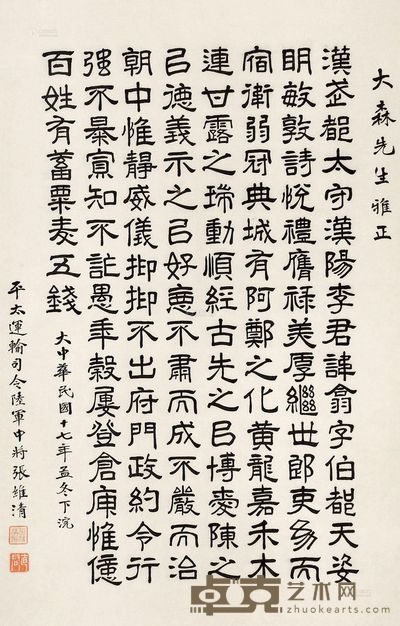 大森先生雅正
漢武都太守漢陽李君諱翕字伯都天姿
明敏敦詩悅禮膺祿美厚繼世郎吏幼而
宿衛弱冠典城有阿鄭之化黃龍嘉禾木
連甘露之瑞動順經古先之㠯博愛陳之
㠯德義示之㠯好惡不肅而成不嚴而治
朝中惟靜威儀抑抑不出府門政約令行
強不暴寡知不詐愚年穀屢登倉庾惟億
百姓有蓄粟麥五錢
大中華民國十七年孟冬下浣
平太運輸司令陸軍中將張維清
卓克艺术网
zhuokearts.com